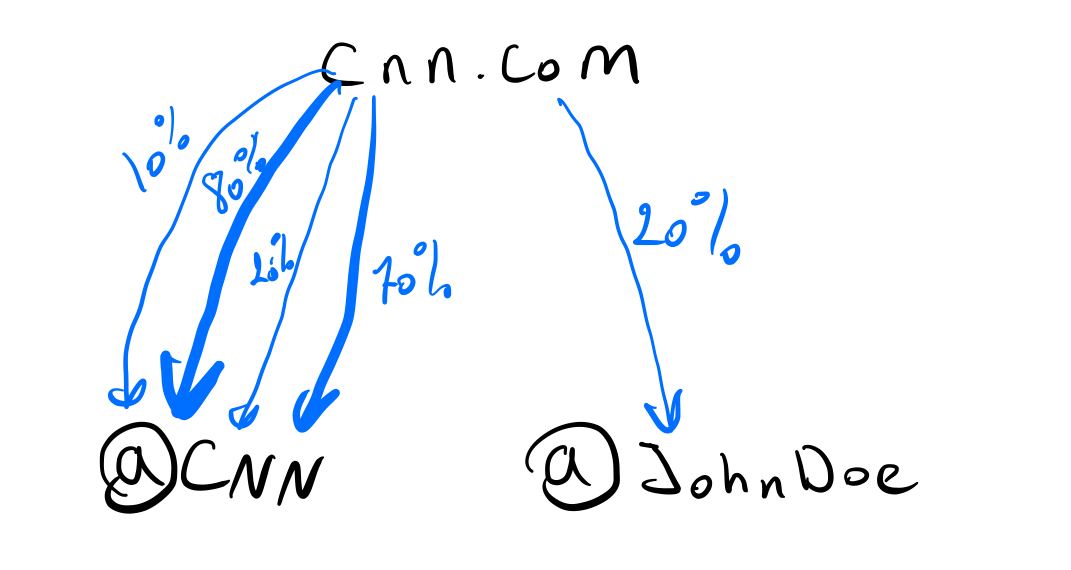 Cnn.com
10%
80%
20%
70%
20%
@CNN
@JohnDoe